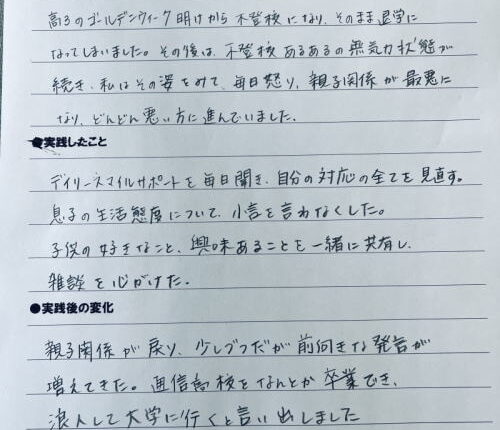 高3のゴールデンウィーク明けから不登校になり、そのまま退学に
なってしまいました。その後は、不登校あるあるの無気力状態が
続き、私はその姿をみて、毎日怒り、親子関係が最悪に
なり、どんどん悪い方に進んでいました。
●実践したこと
デイリースマイルサポートを毎日聞き、自分の対応の全てを見直す。
息子の生活態度について、小言を言わなくした。
子供の好きなこと、興味あることを一緒に共有し、
雑談を心がけた。
●実践後の変化
親子関係が戻り、少しづつだが前向きな発言が
増えてきた。通信高校をなんとか卒業でき、
浪人して大学に行くと言い出しました